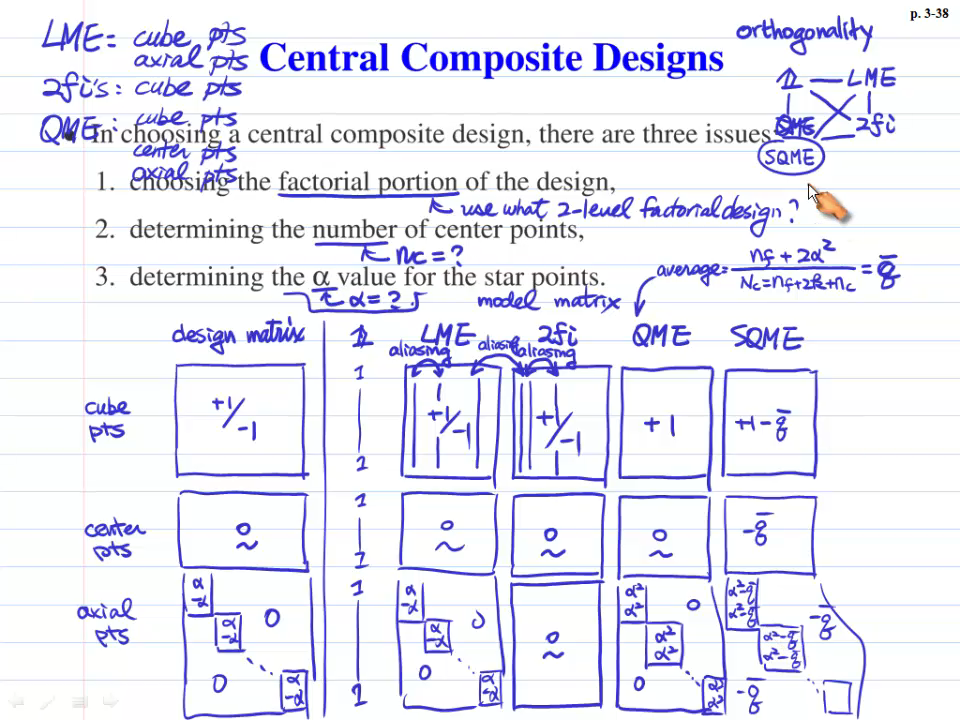 p. 3-38
LME = cube pts
axial pts
2fi's : cube pts
QME : cube pts
center pts
axial pts
orthogonality
1 LME
QME 2fi
SQME
Central Composite Designs
• In choosing a central composite design, there are three issues
1. choosing the factorial portion of the design,
← use what 2-level factorial design?
2. determining the number of center points,
nc = ?
3. determining the α value for the star points.
α = ?
average = nf + 2α² / Nc = nf + 2k + nc = q̄
model matrix
design matrix 1 LME 2fi QME SQME
aliasing aliasing aliasing
cube pts
+1/-1 1 1 +1/-1 +1/-1 +1 +1-q̄
center pts
0 1 1 0 0 0 -q̄
axial pts
α -α 0 1 α -α 0 0 α² α² 0 α²-q̄ α²-q̄ -q̄
α -α α -α α² α² α²-q̄ α²-q̄
0 α -α 1 0 α -α 0 α² α² -q̄